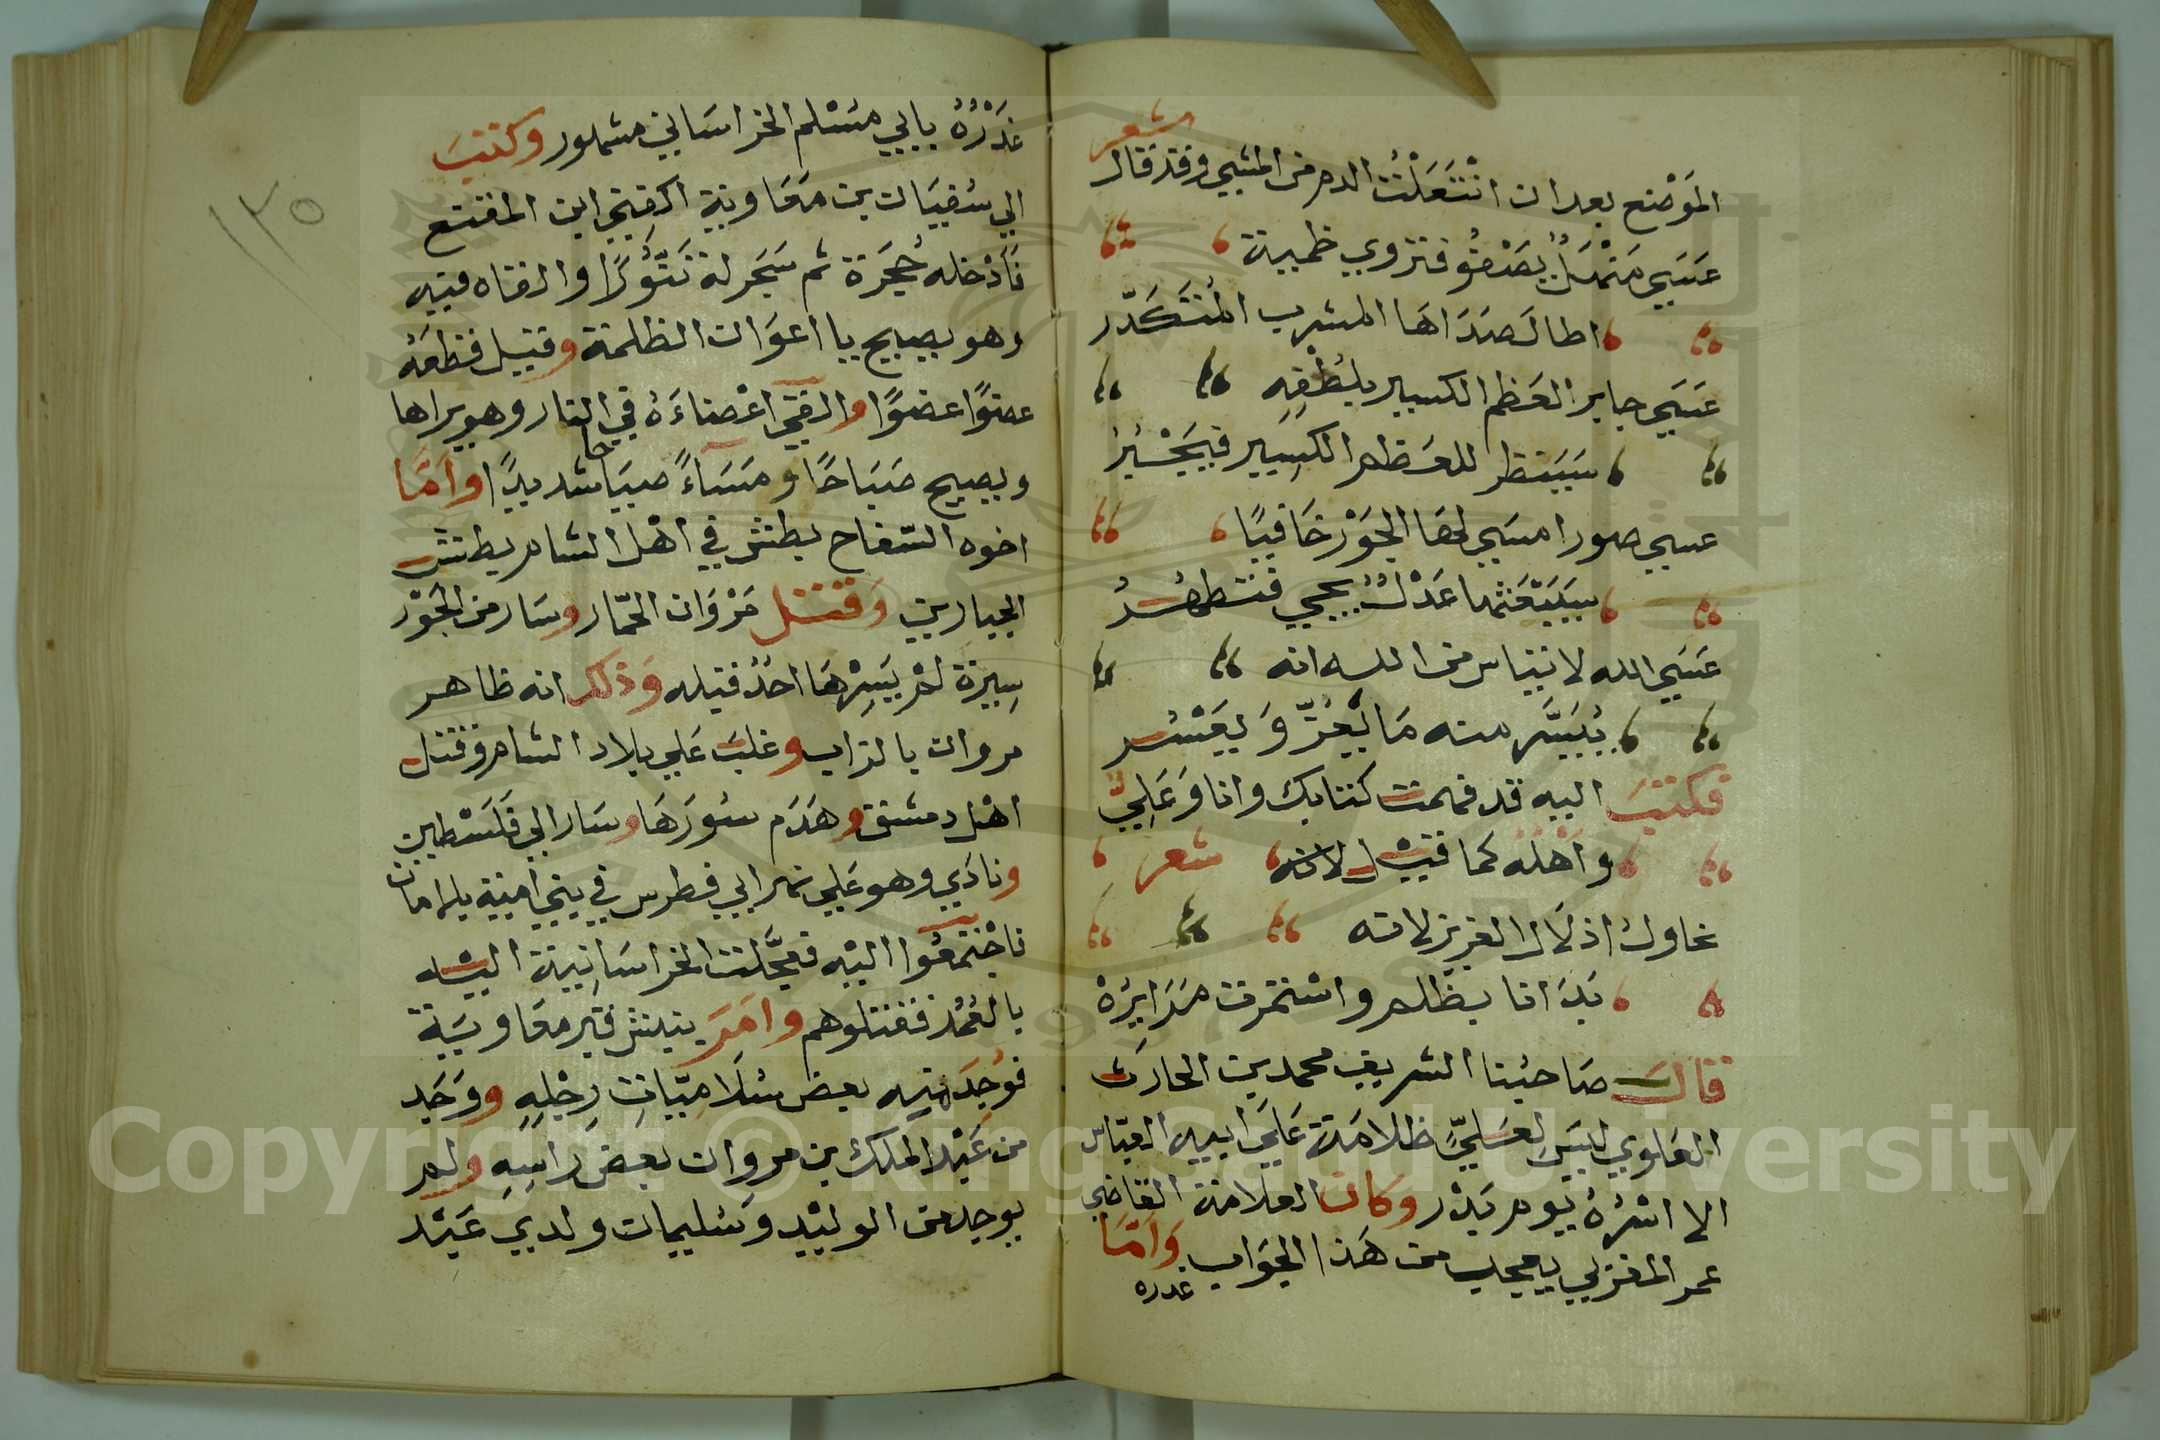 شعر
الموضع بعد ان انتَعَلْتُ الدم من المشي وقد قال
عَسَي مَنْهَلٌ يَصْفُو فتروي ظمية
اطال صَدَاهَا المشرب المُتَكَدّر
عَسَي جابر العَظم الكسير بلُطْفِهِ
سَيَنظر للعَظم الكَسِير فيَجْبُرُ
عسي صور امسَي لهَا الجَوْر خَافيًا
سَيَبْعَثها عَدْلٌ يجي فتظهُرُ
عَسَي الله لا تياس من الله انه
يُيَسَّر منه مَا يَعُزّ وَيَعْسُر
فكتبَ اليه قد فهمت كتابك وانا وَعَلِيٌّ
وَاهْلُهُ كما قيْل لانه شعر
نحاول اذلَال العزيز لانه
بَدَانا بظلم واسْتمرت مَرَايرُهْ
قالَ صَاحبُنا الشريف محمد بن الحارث
العَلوي ليسَ لعَليٍّ ظلامَة عَلَي ابيه العبّاس
الا اسْرُهُ يوم بَدْر وكان العلامة القاضي
عمر المغربي يعجب من هَذا الجَواب وَامَّا
غدره
١٣٥
غَدْرُهُ بابي مسْلم الخراسَاني مشهور وكتبَ
الي سُفيَان بن مَعَاوية اكفني ابن المقفع
فاَدْخله حُجَرَة ثم سَجَر له تَنُّورًا والقاه فيه
وهو يصيح يا اعوَان الظلمة وقيل قطعَهُ
عضوًا عضوًا والقي اعْضاءَهُ في النار وهو يراها
ويصيح صَبَاحًا ومَسَاءً صيَاحا شديدًا وَاَمَّا
اخوه السّفاح بطش في اهْل الشام بطش
الجبارين وَقتل مَرْوَان الحمّار وسَار من الجَوْر
سِيرَة لَمْ يَسِرْهَا احَدٌ قبله وَذكر انه ظاهر
مروان بالزاب وغلبَ عَلي بلاد الشام وقتل
اهْل دمشق وهَدَم سُورَهَا وسَار الي فَلَسْطين
ونادَي وهو عَلي نهر ابي فطرس في بني امية بالامان
فاجْتمعُوا اليْه فعجَّلت الخراسَانِية اليْه
بالعُمُد فقتلوهم وامَرَ بنبش قبر معَاويَة
فوُجِدَ فيه بعض سُلَاميّاتِ رِجْلِهِ ووَجَد
من عَبْد الملك بن مروان بعض رَاسِهِ ولم
يوجد من الوليْد وَسُليمان ولدي عَبْد
Copyright © King Saud University